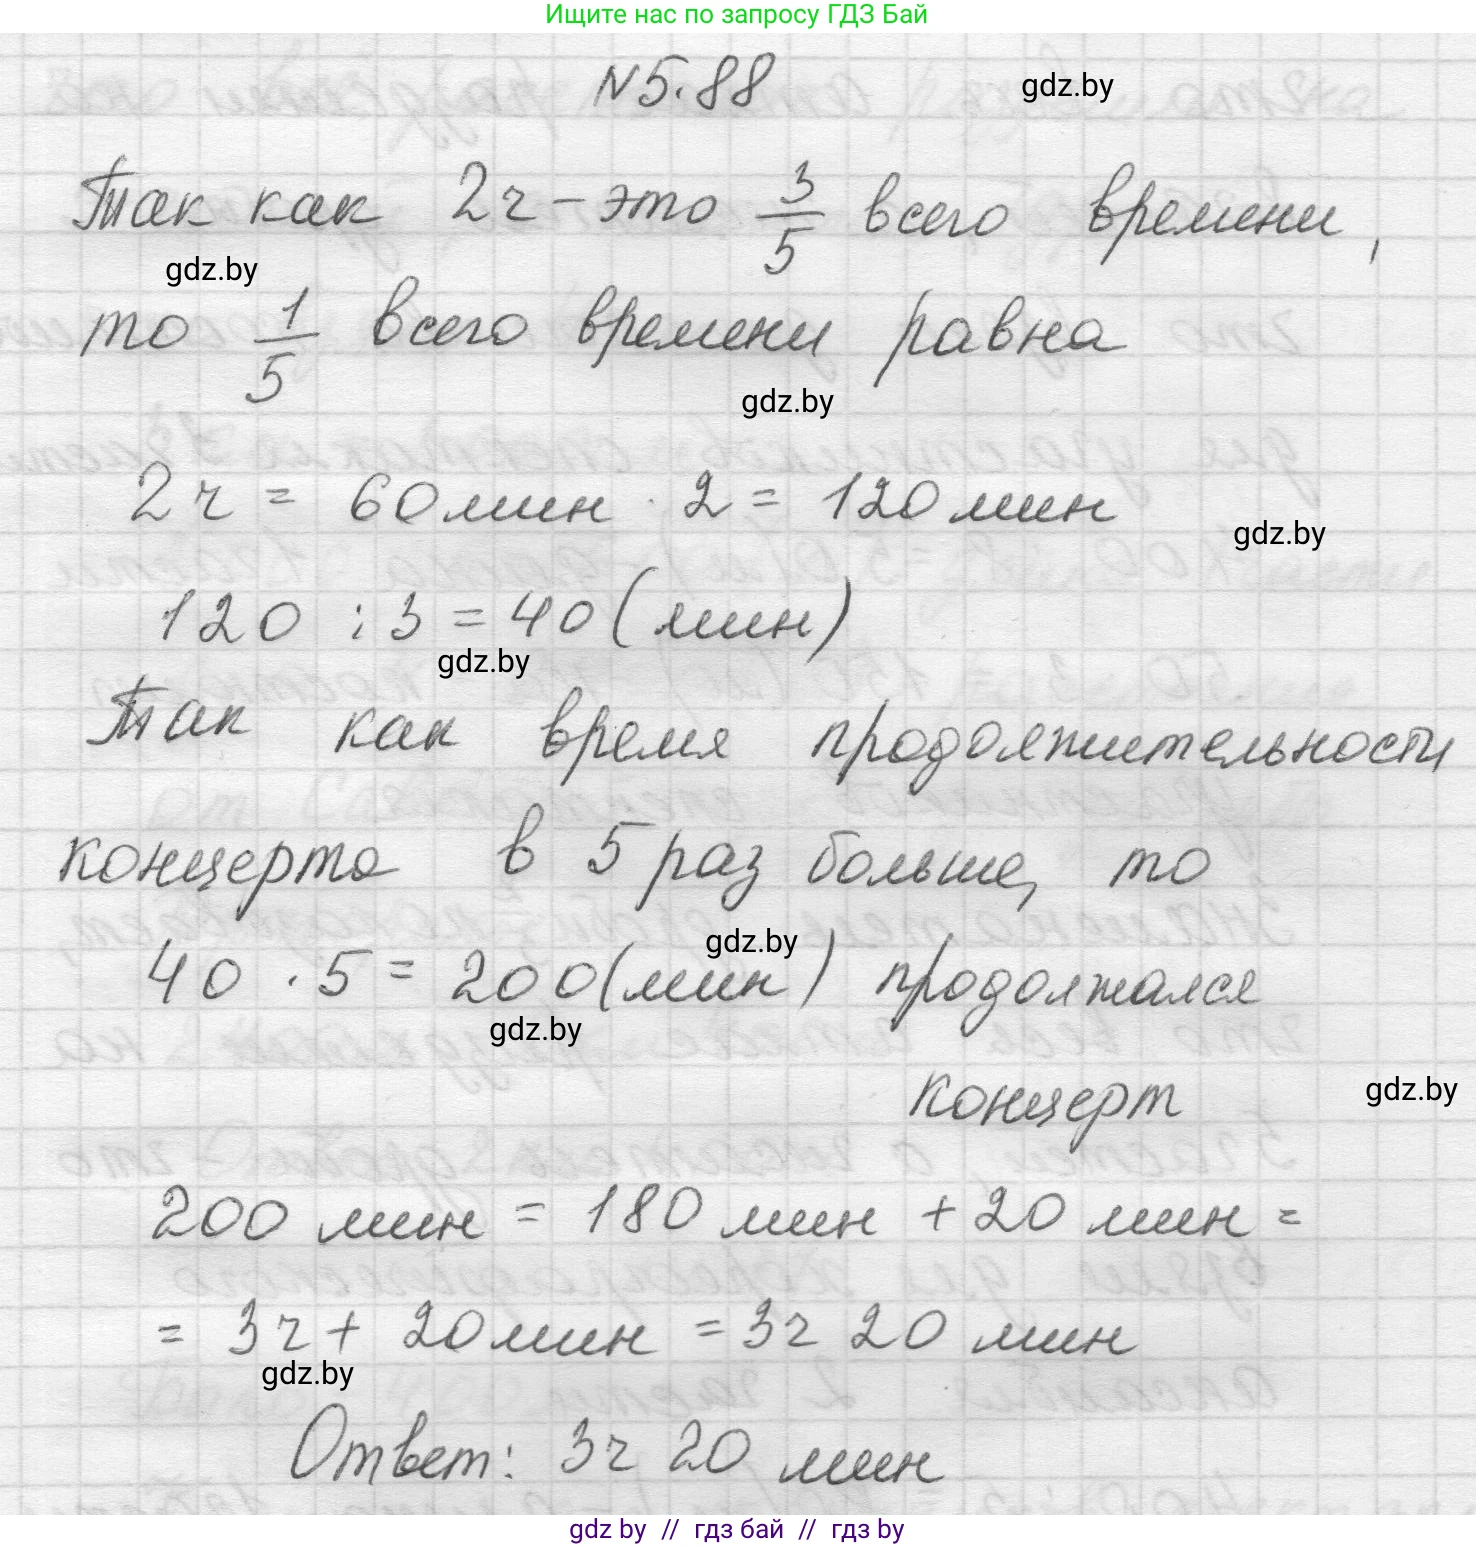 Ищите нас по запросу ГДЗ Бай
№5.88
gdz.by
Так как 2ч - это 3/5 всего времени,
gdz.by
то 1/5 всего времени равна
gdz.by
2ч = 60 мин · 2 = 120 мин
gdz.by
120 : 3 = 40 (мин)
gdz.by
Так как время продолжительности
концерта в 5 раз больше, то
gdz.by
40 · 5 = 200 (мин) продолжался
gdz.by
концерт
gdz.by
200 мин = 180 мин + 20 мин =
= 3ч + 20 мин = 3ч 20 мин
gdz.by
Ответ: 3ч 20 мин
gdz by // гдз бай // гдз by